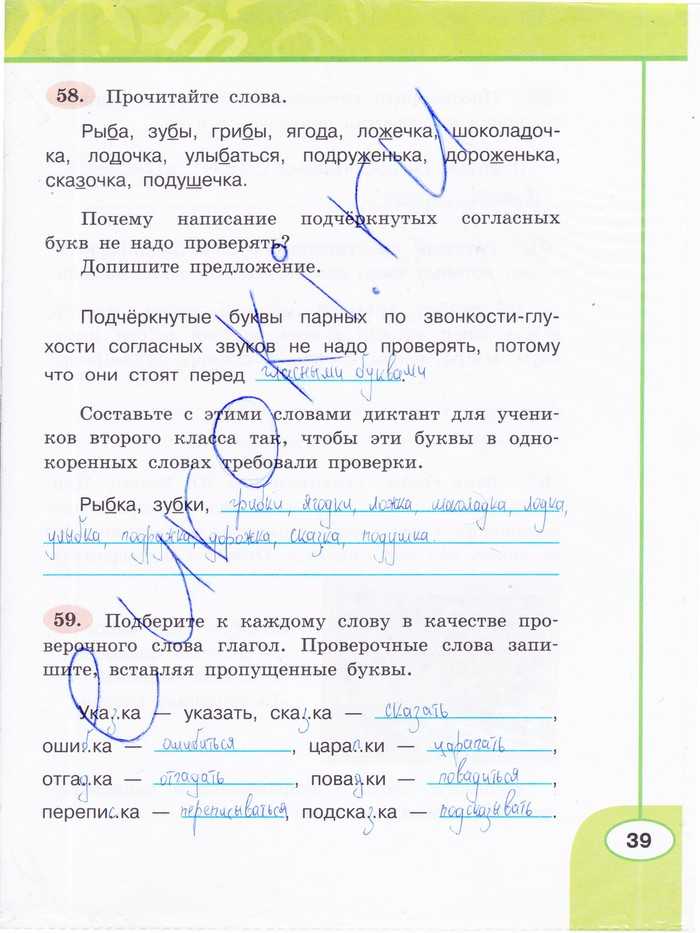 58. Прочитайте слова.
Рыба, зубы, грибы, ягода, ложечка, шоколадоч-
ка, лодочка, улыбаться, подруженька, дороженька,
сказочка, подушечка.
Почему написание подчёркнутых согласных
букв не надо проверять?
Допишите предложение.
Подчёркнутые буквы парных по звонкости-глу-
хости согласных звуков не надо проверять, потому
что они стоят перед гласными буквами.
Составьте с этими словами диктант для учени-
ков второго класса так, чтобы эти буквы в одно-
коренных словах требовали проверки.
Рыбка, зубки, грибки, ягодки, ложка, шоколадка, лодка,
улыбка, подружка, дорожка, сказка, подушка.
59. Подберите к каждому слову в качестве про-
верочного слова глагол. Проверочные слова запи-
шите, вставляя пропущенные буквы.
Указ.ка — указать, сказ.ка — сказать,
ошиб.ка — ошибиться, царап.ки — царапать,
отгад.ка — отгадать, повад.ки — повадиться,
перепис.ка — переписываться, подсказ.ка — подсказывать.
39
e-uroki.ru